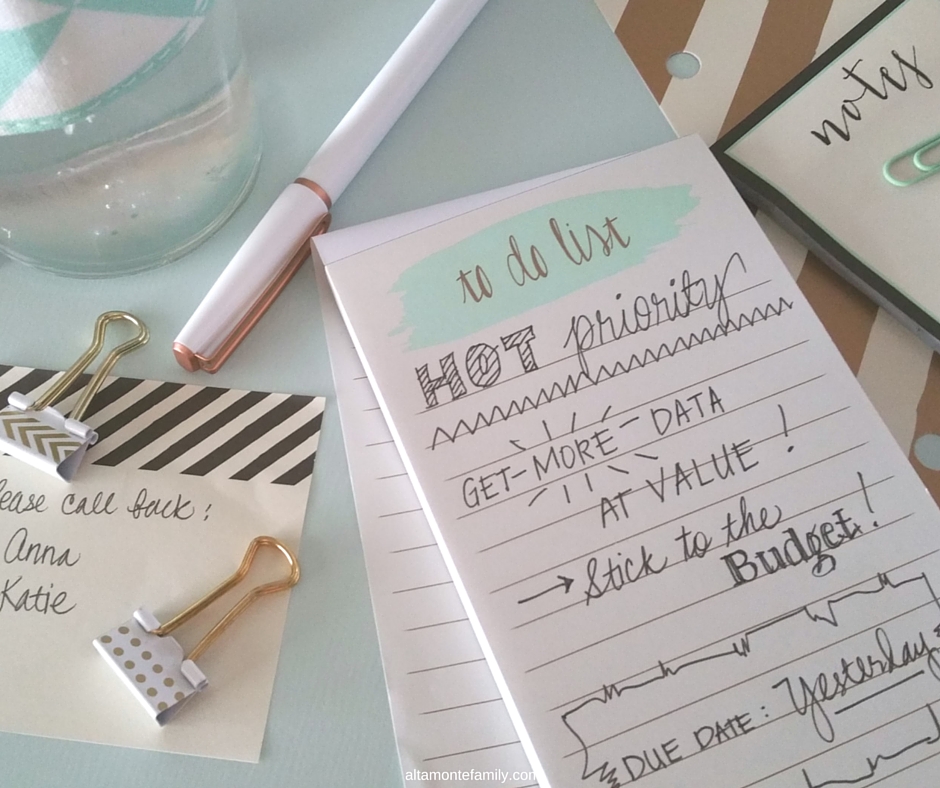 notes
to do list
HOT priority
GET-MORE-DATA
AT VALUE!
→ Stick to the
Budget!
DUE DATE: Yesterday
call back:
Anna
Katie
altamontefamily.com